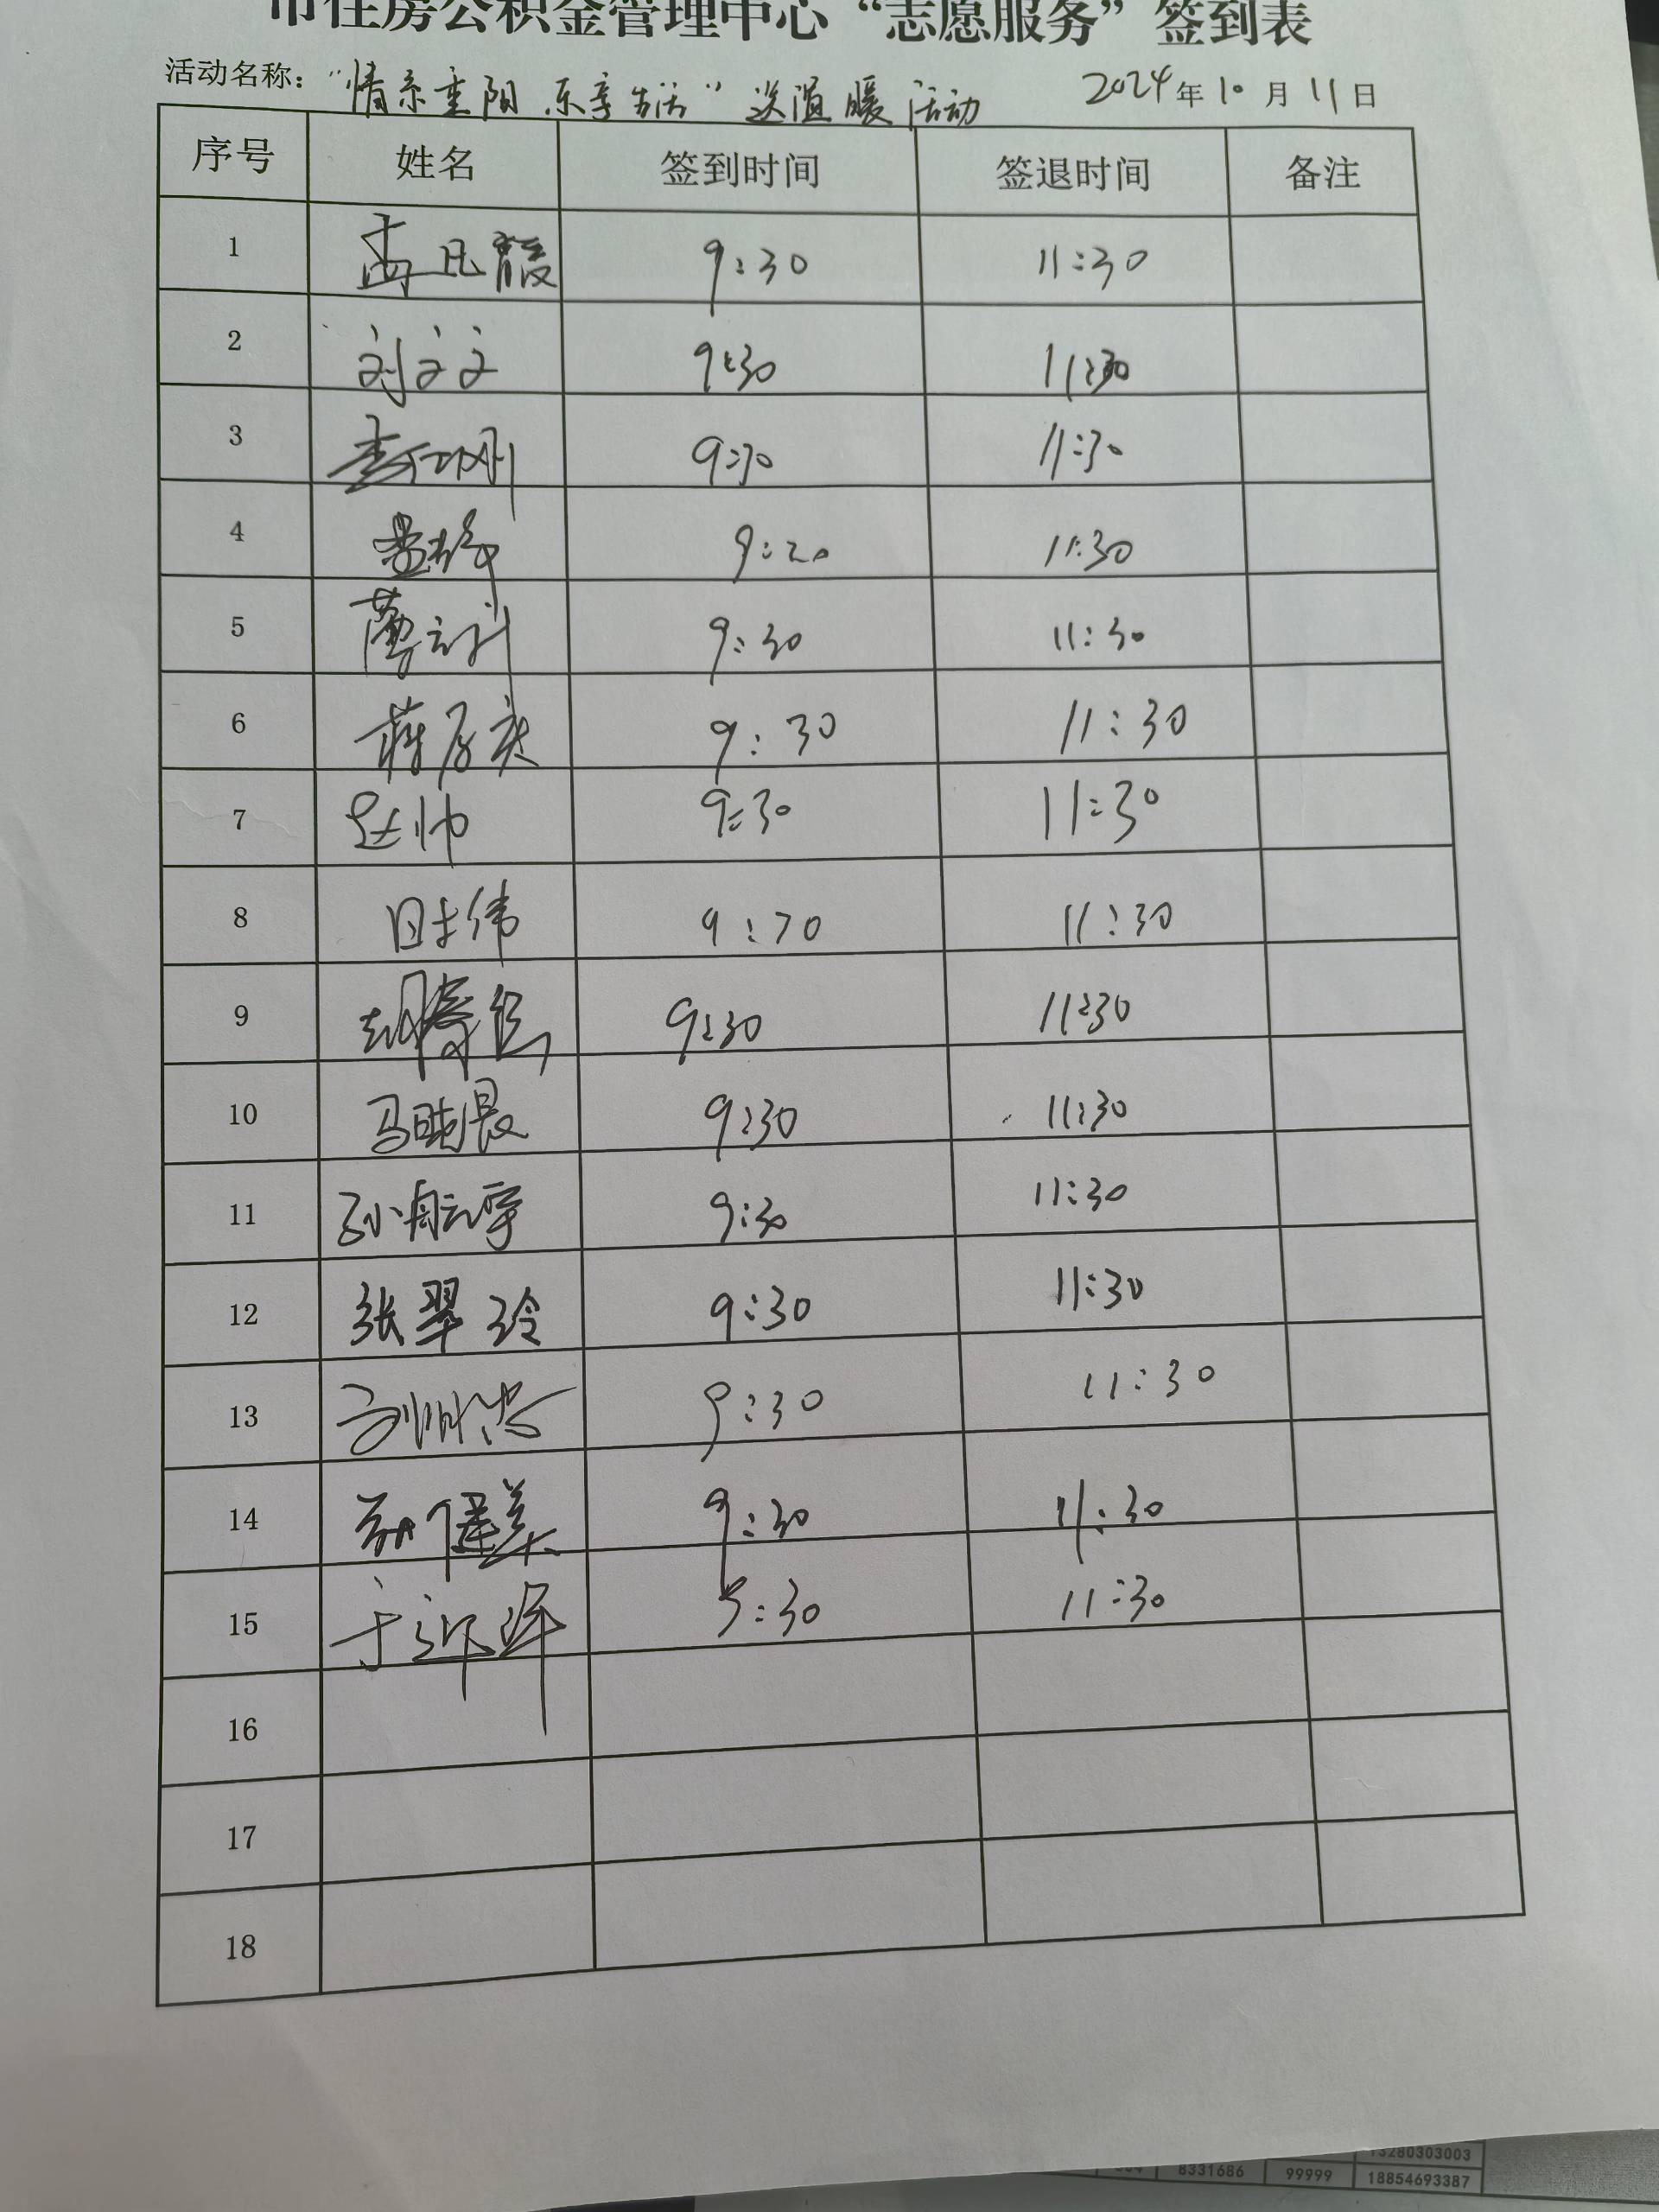 市住房公积金管理中心“志愿服务”签到表
活动名称：“情系重阳 乐享生活”送温暖活动 2024年10月11日
序号 姓名 签到时间 签退时间 备注
1 9:30 11:30
2 刘文文 9:30 11:30
3 9:30 11:30
4 9:20 11:30
5 9:30 11:30
6 9:30 11:30
7 赵帅 9:30 11:30
8 9:30 11:30
9 9:30 11:30
10 马晓晨 9:30 11:30
11 孙航宇 9:30 11:30
12 张翠玲 9:30 11:30
13 9:30 11:30
14 9:30 11:30
15 9:30 11:30
16
17
18
13280303003
8331686 99999 18854693387